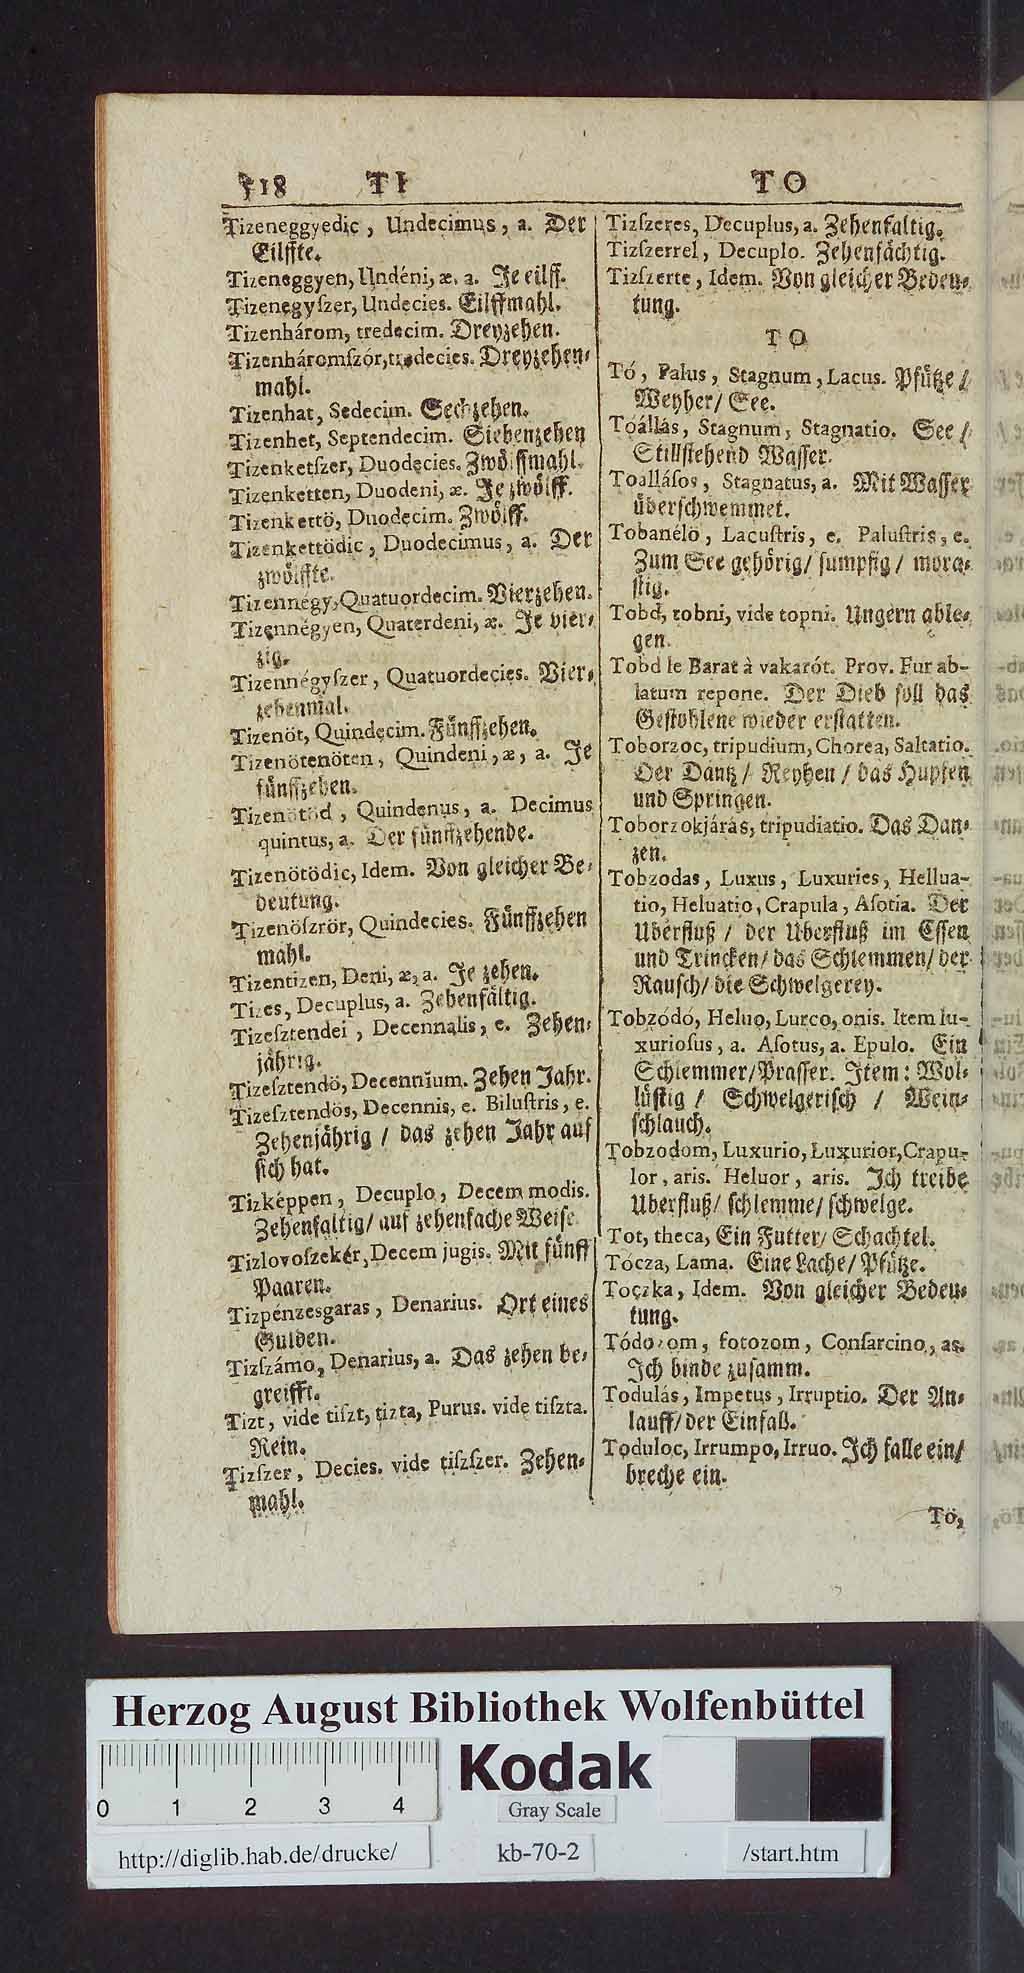 518 TI TO
Tizeneggyedic, Undecimus, a. Der
Eilffte.
Tizeneggyen, Undéni, æ, a. Je eilff.
Tizenegyſzer, Undecies. Eilffmahl.
Tizenhárom, tredecim. Dreyzehen.
Tizenháromſzór, tredecies. Dreyzehen-
mahl.
Tizenhat, Sedecim. Sechzehen.
Tizenhet, Septendecim. Siebenzehen
Tizenketſzer, Duodecies. Zwölffmahl.
Tizenketten, Duodeni, æ. Je zwölff.
Tizenkettö, Duodecim. Zwölff.
Tizenkettödic, Duodecimus, a. Der
zwölffte.
Tizennégy, Quatuordecim. Vierzehen.
Tizennégyen, Quaterdeni, æ. Je vier-
zig.
Tizennégyſzer, Quatuordecies. Vier-
zehenmal.
Tizenöt, Quindecim. Fünffzehen.
Tizenötenöten, Quindeni, æ, a. Je
fünffzehen.
Tizenötöd, Quindenus, a. Decimus
quintus, a. Der fünffzehende.
Tizenötödic, Idem. Von gleicher Be-
deutung.
Tizenöſzrör, Quindecies. Fünffzehen
mahl.
Tizentizen, Deni, æ, a. Je zehen.
Tizes, Decuplus, a. Zehenfältig.
Tizeſztendei, Decennalis, e. Zehen-
jährig.
Tizeſztendö, Decennium. Zehen Jahr.
Tizeſztendös, Decennis, e. Biluſtris, e.
Zehenjährig / das zehen Jahr auf
ſich hat.
Tizképpen, Decuplo, Decem modis.
Zehenfaltig/ auf zehenfache Weiſe
Tizlovoſzekér, Decem jugis. Mit fünff
Paaren.
Tizpénzesgaras, Denarius. Ort eines
Gulden.
Tizſzámo, Denarius, a. Das zehen be-
greifft.
Tizt, vide tiſzt, tizta, Purus. vide tiſzta.
Rein.
Tizſzer, Decies. vide tiſzſzer. Zehen-
mahl.
Tizſzeres, Decuplus, a. Zehenfaltig.
Tizſzerrel, Decuplo. Zehenfächtig.
Tizſzerte, Idem. Von gleicher Bedeu-
tung.
TO
Tó, Palus, Stagnum, Lacus. Pfütze /
Weyher/ See.
Toállás, Stagnum, Stagnatio. See /
Stillſtehend Waſſer.
Toálláſos, Stagnatus, a. Mit Waſſer
überſchwemmet.
Tobanélö, Lacuſtris, e. Paluſtris, e.
Zum See gehörig/ ſumpfig / mora-
ſtig.
Tobd, tobni, vide topni. Ungern able-
gen.
Tobd le Barat à vakarót. Prov. Fur ab-
latum repone. Der Dieb ſoll das
Geſtohlene wieder erſtatten.
Toborzoc, tripudium, Chorea, Saltatio.
Der Dantz / Reyhen / das Hupfen
und Springen.
Toborzokjárás, tripudiatio. Das Dan-
zen.
Tobzodas, Luxus, Luxuries, Hellua-
tio, Heluatio, Crapula, Aſotia. Der
Uberfluß / der Uberfluß im Eſſen
und Trincken/ das Schlemmen/ der
Rauſch/ die Schwelgerey.
Tobzódó, Heluo, Lurco, onis. Item lu-
xurioſus, a. Aſotus, a. Epulo. Ein
Schlemmer/ Praſſer. Item: Wol-
lüſtig / Schwelgeriſch / Wein-
ſchlauch.
Tobzodom, Luxurio, Luxurior, Crapu-
lor, aris. Heluor, aris. Ich treibe
Uberfluß/ ſchlemme/ ſchwelge.
Tot, theca, Ein Futter/ Schachtel.
Tócza, Lama. Eine Lache/ Pfütze.
Toczka, Idem. Von gleicher Bedeu-
tung.
Tódozom, fotozom, Conſarcino, as.
Ich binde zuſamm.
Todulás, Impetus, Irruptio. Der An-
lauff/ der Einfaß.
Toduloc, Irrumpo, Irruo. Ich falle ein/
breche ein.
Tö,
Herzog August Bibliothek Wolfenbüttel
Kodak
0 1 2 3 4
Gray Scale
http://diglib.hab.de/drucke/ kb-70-2 /start.htm